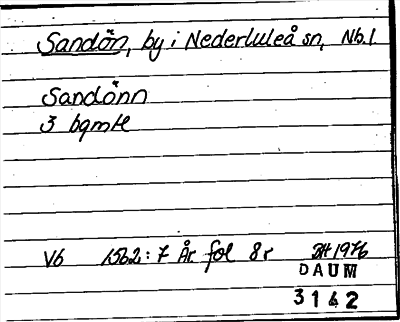 Sandön, by i Nederluleå sn, Nb.l
Sandönn
3 bgmtl
Vb 1562:7 År fol 8r BH 1976
DAUM
3142